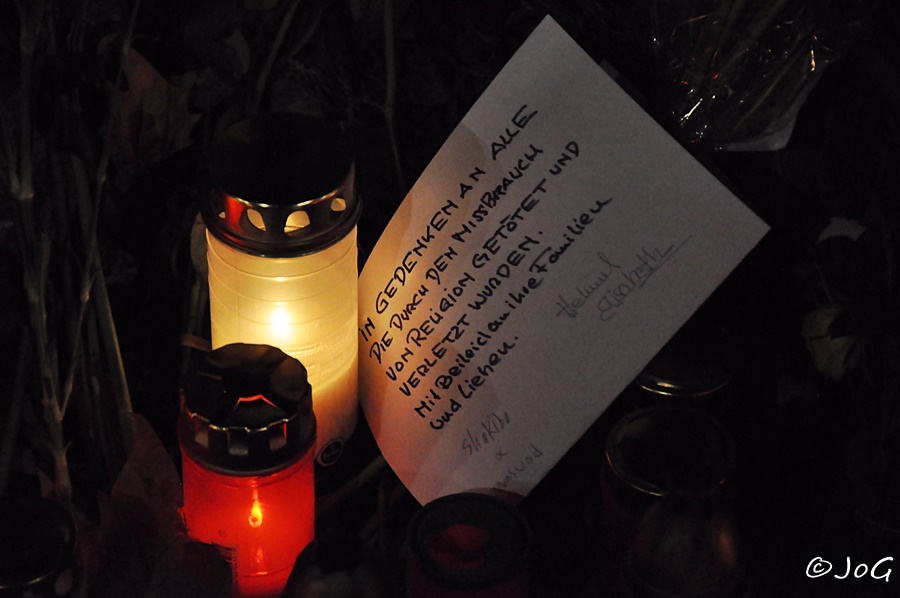 IN GEDENKEN AN ALLE
DIE DURCH DEN MISSBRAUCH
VON RELIGION GETÖTET UND
VERLETZT WURDEN.
Mit Beileid an ihre Familien
und Lieben.
Helmut
Elisabeth
&
©JoG